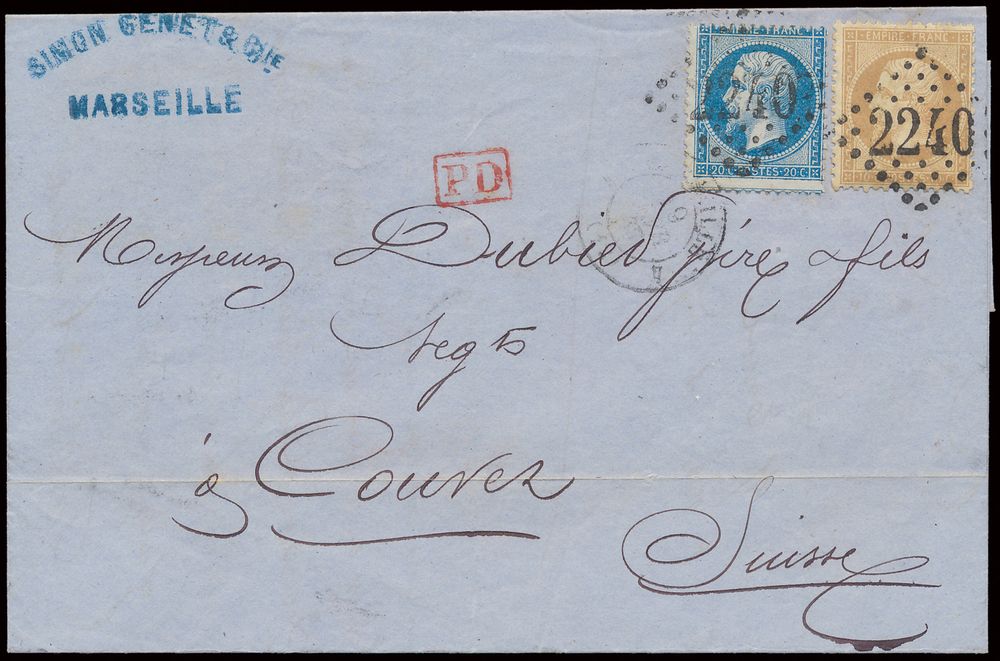 SIMON GENET & CIE
MARSEILLE
EMPIRE FRANC
20 C POSTES 20 C
2240
EMPIRE FRANC
2240
PD
Monsieur Dubied père & fils
Negts
à Couvet
Suisse